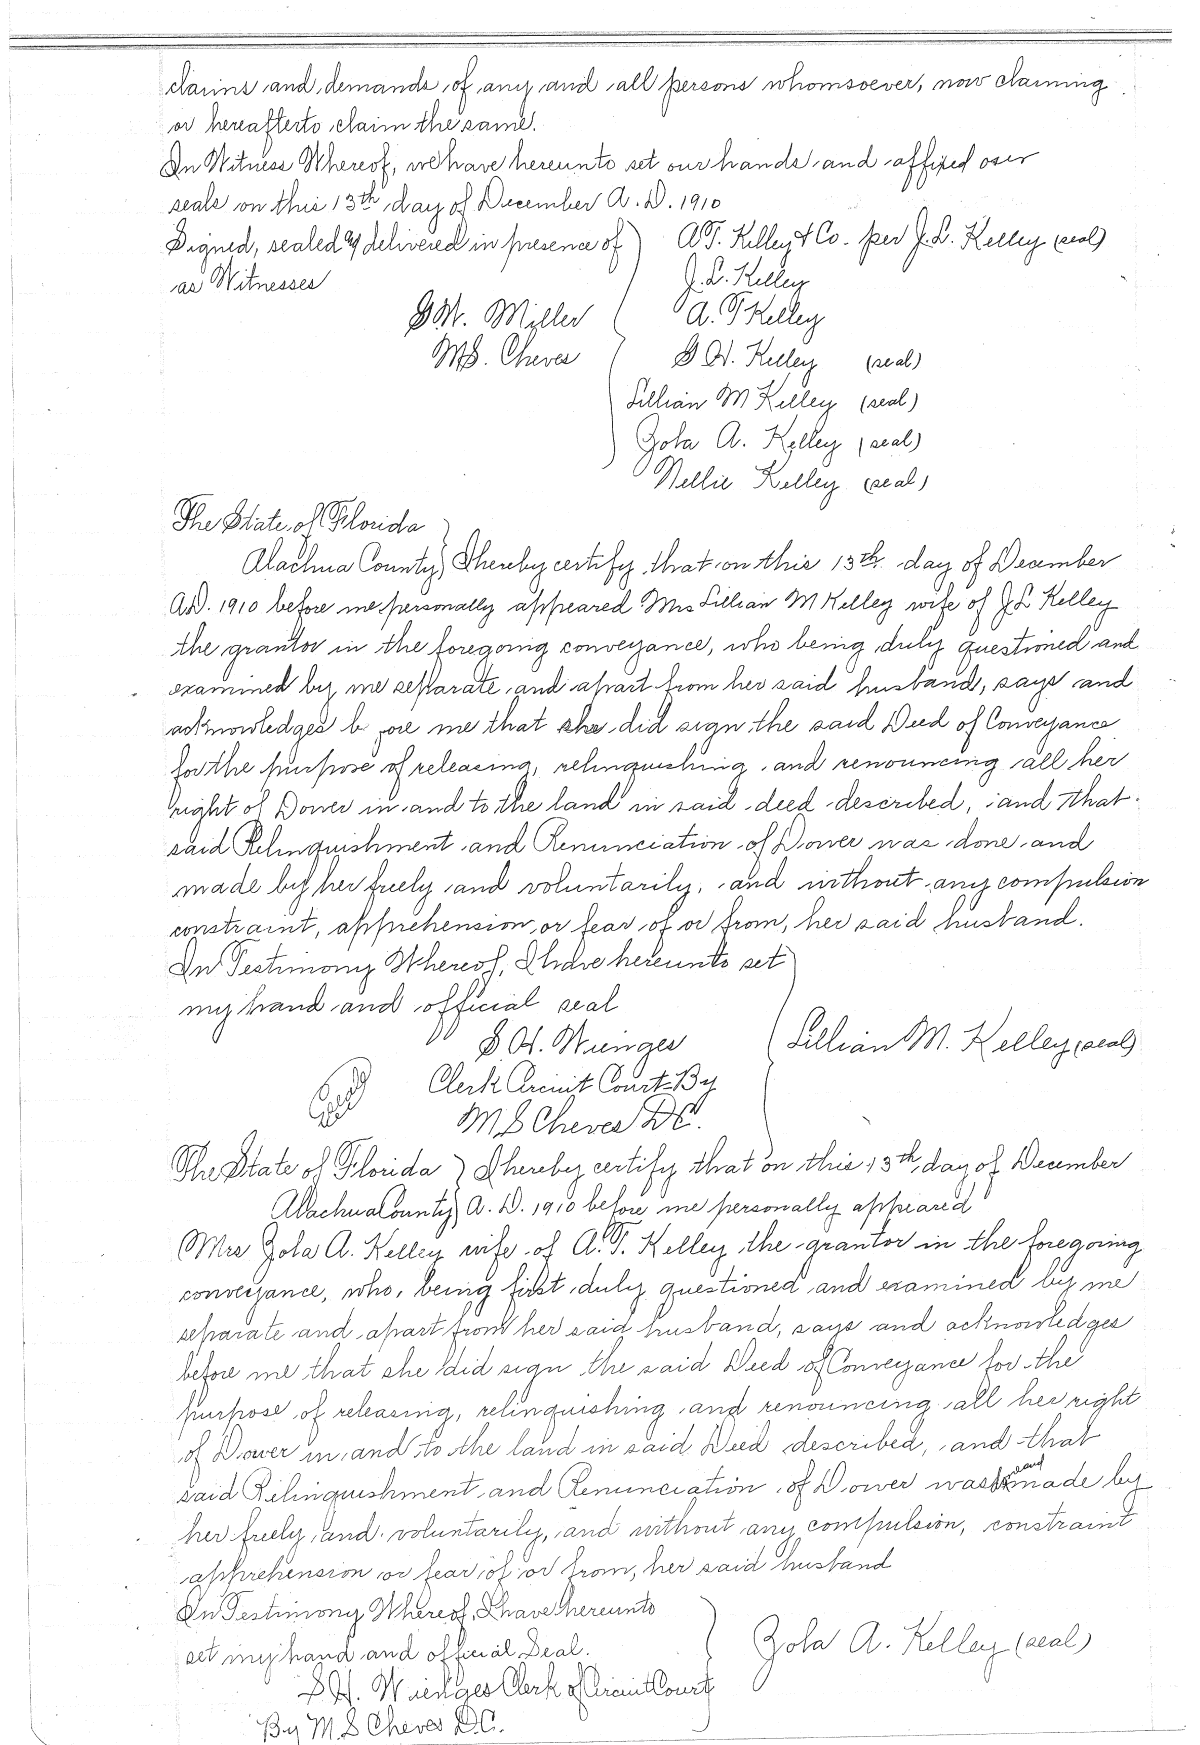 claims and demands of any and all persons whomsoever, now claiming
or hereafter to claim the same.
In Witness Whereof, we have hereunto set our hands and affixed our
seals on this 13th day of December A. D. 1910
Signed, sealed & delivered in presence of ) A.T. Kelley & Co. per J. L. Kelley (seal)
as Witnesses J. L. Kelley
Miller A. T Kelley
M.S. Cheves H. Kelley (seal)
Lillian M Kelley (seal)
Zola A. Kelley (seal)
Nellie Kelley (seal)
The State of Florida }
Alachua County } I hereby certify that on this 13th day of December
A.D. 1910 before me personally appeared Mrs Lillian M Kelley wife of J L Kelley
the grantor in the foregoing conveyance, who being duly questioned and
examined by me separate and apart from her said husband, says and
acknowledges before me that she did sign the said Deed of Conveyance
for the purpose of releasing, relinquishing and renouncing all her
right of Dower in and to the land in said deed described, and that
said Relinquishment and Renunciation of Dower was done and
made by her freely and voluntarily, and without any compulsion
constraint, apprehension, or fear of or from, her said husband.
In Testimony Whereof, I have hereunto set
my hand and official seal
S H. Wienges Lillian M. Kelley (seal)
Seal Clerk Circuit Court By
M S Cheves D C.
The State of Florida } I hereby certify that on this 13th day of December
Alachua County } A. D. 1910 before me personally appeared
Mrs Zola A. Kelley wife of A. T. Kelley the grantor in the foregoing
conveyance, who, being first duly questioned and examined by me
separate and apart from her said husband, says and acknowledges
before me that she did sign the said Deed of Conveyance for the
purpose of releasing, relinquishing and renouncing all her right
of Dower in and to the land in said Deed described, and that
said Relinquishment and Renunciation of Dower was and made by
her freely and voluntarily, and without any compulsion, constraint
apprehension or fear of or from, her said husband
In Testimony Whereof, I have hereunto
set my hand and official Seal. Zola A. Kelley (seal)
S H. Wienges Clerk of Circuit Court
By M. S Cheves D.C.